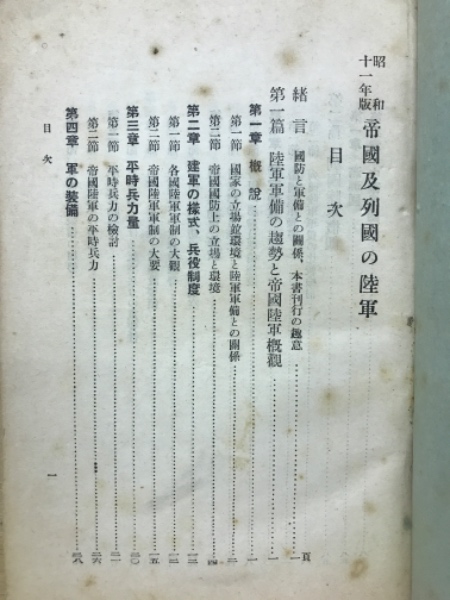 昭和十一年版 帝國及列國の陸軍
目次
頁
緒言 國防と軍備との關係、本書刊行の趣意……一
第一篇 陸軍軍備の趨勢と帝國陸軍概觀……一
第一章 概說……一
第一節 國家の立場竝環境と陸軍軍備との關係……二
第二節 帝國國防上の立場と環境……四
第二章 建軍の樣式、兵役制度……一二
第一節 各國陸軍軍制の大觀……一二
第二節 帝國陸軍軍制の大要……一五
第三章 平時兵力量……二〇
第一節 平時兵力の檢討……二一
第二節 帝國陸軍の平時兵力……二六
第四章 軍の裝備……二八
目次
一